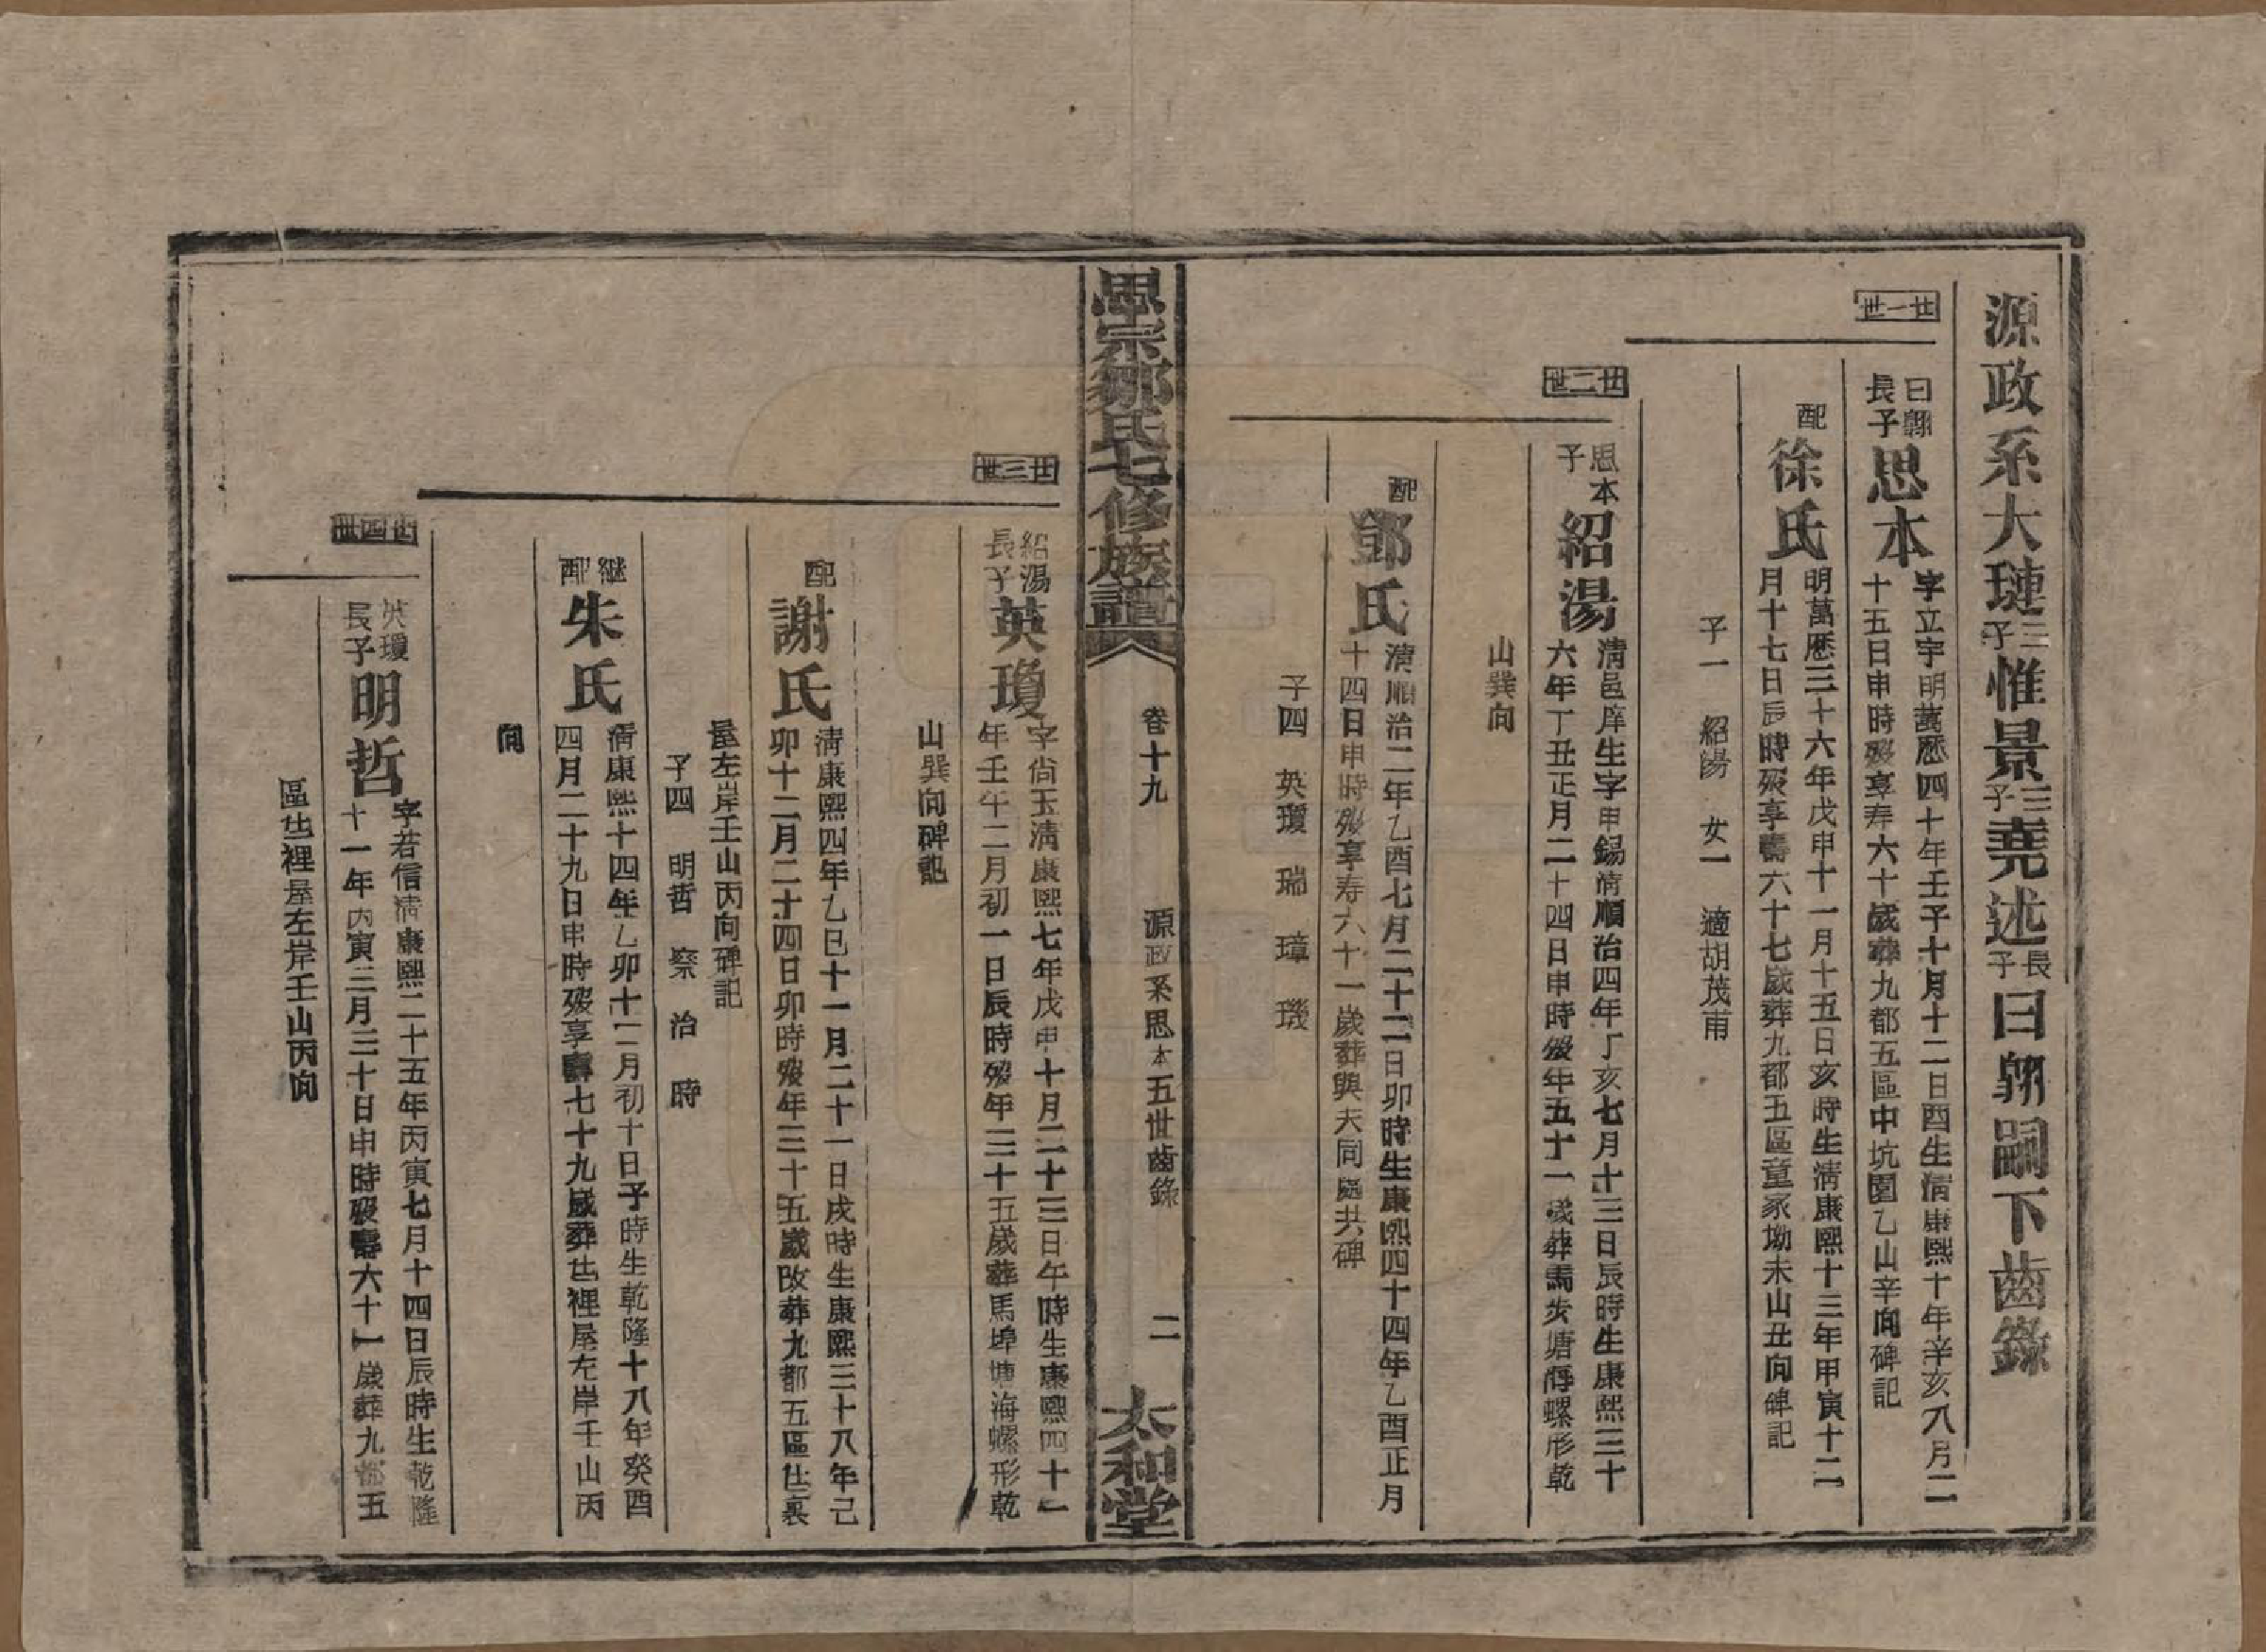 源政系大璉三子惟景三子堯述長子曰翺嗣下齒錄
廿一世
曰翺長子思本
字立宇明萬歷四十年壬子十月十二日酉生清康熙十年辛亥八月二
十五日申時歿享寿六十歲葬九都五區中坑園乙山辛向碑記
配徐氏
明萬歷三十六年戊申十一月十五日亥時生清康熙十三年甲寅十二
月十七日辰時歿享壽六十七歲葬九都五區童家坳未山丑向碑記
子一 紹湯 女一 適胡茂甫
廿二世
思本子紹湯
清邑庠生字申錫清順治四年丁亥七月十三日辰時生康熙三十
六年丁丑正月二十四日申時歿年五十一歲葬馬步塘海螺形乾
山巽向
配鄧氏
清順治二年乙酉七月二十二日卯時生康熙四十四年乙酉正月
十四日申時歿享寿六十一歲葬與夫同處共碑
子四 英瓊 瑞 璋 璣
思宗鄒氏七修族譜
卷十九
源政系思本五世齒錄
二
太和堂
廿三世
紹湯長子英瓊
字尙玉清康熙七年戊申十月二十三日午時生康熙四十一
年壬午二月初一日辰時歿年三十五歲葬馬埠塘海螺形乾
山巽向碑記
配謝氏
清康熙四年乙巳十一月二十一日戌時生康熙三十八年己
卯十二月二十四日卯時歿年三十五歲改葬九都五區㐀裏
屋左岸壬山丙向碑記
子四 明哲 察 治 時
継配朱氏
清康熙十四年乙卯十二月初十日子時生乾隆十八年癸酉
四月二十九日申時歿享壽七十九歲葬㐀裡屋左岸壬山丙
向
廿四世
英瓊長子明哲
字若信清康熙二十五年丙寅七月十四日辰時生乾隆
十一年丙寅三月三十日申時歿壽六十一歲葬九都五
區㐀裡屋左岸壬山丙向